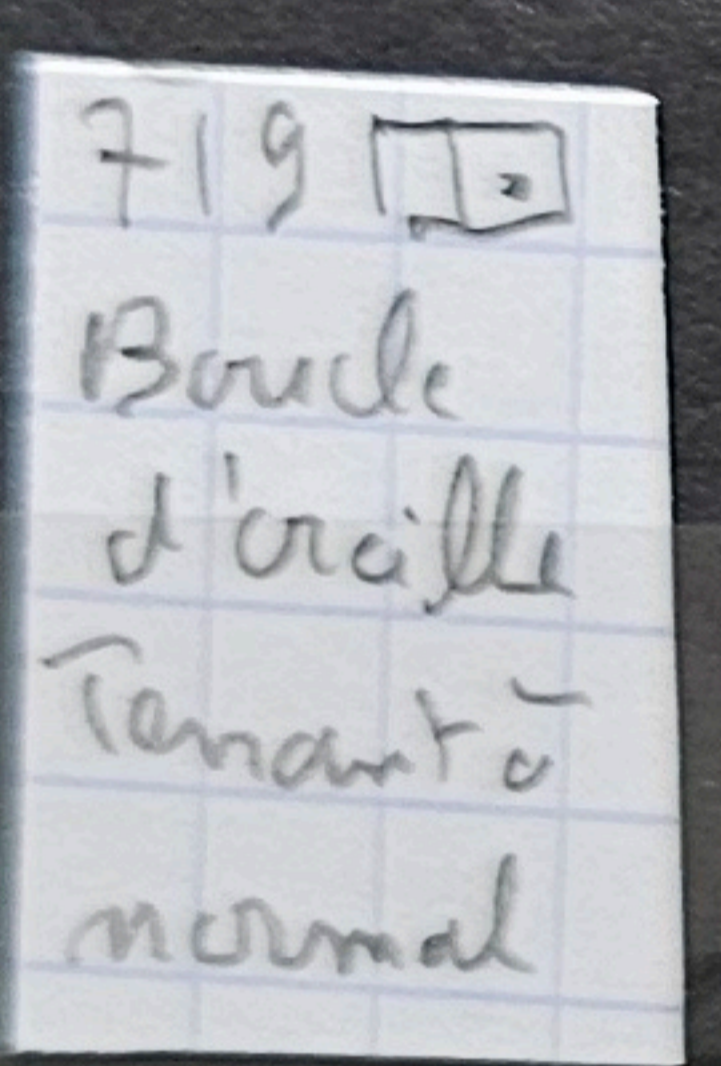 719
Boucle
d'oreille
Tenant à
normal